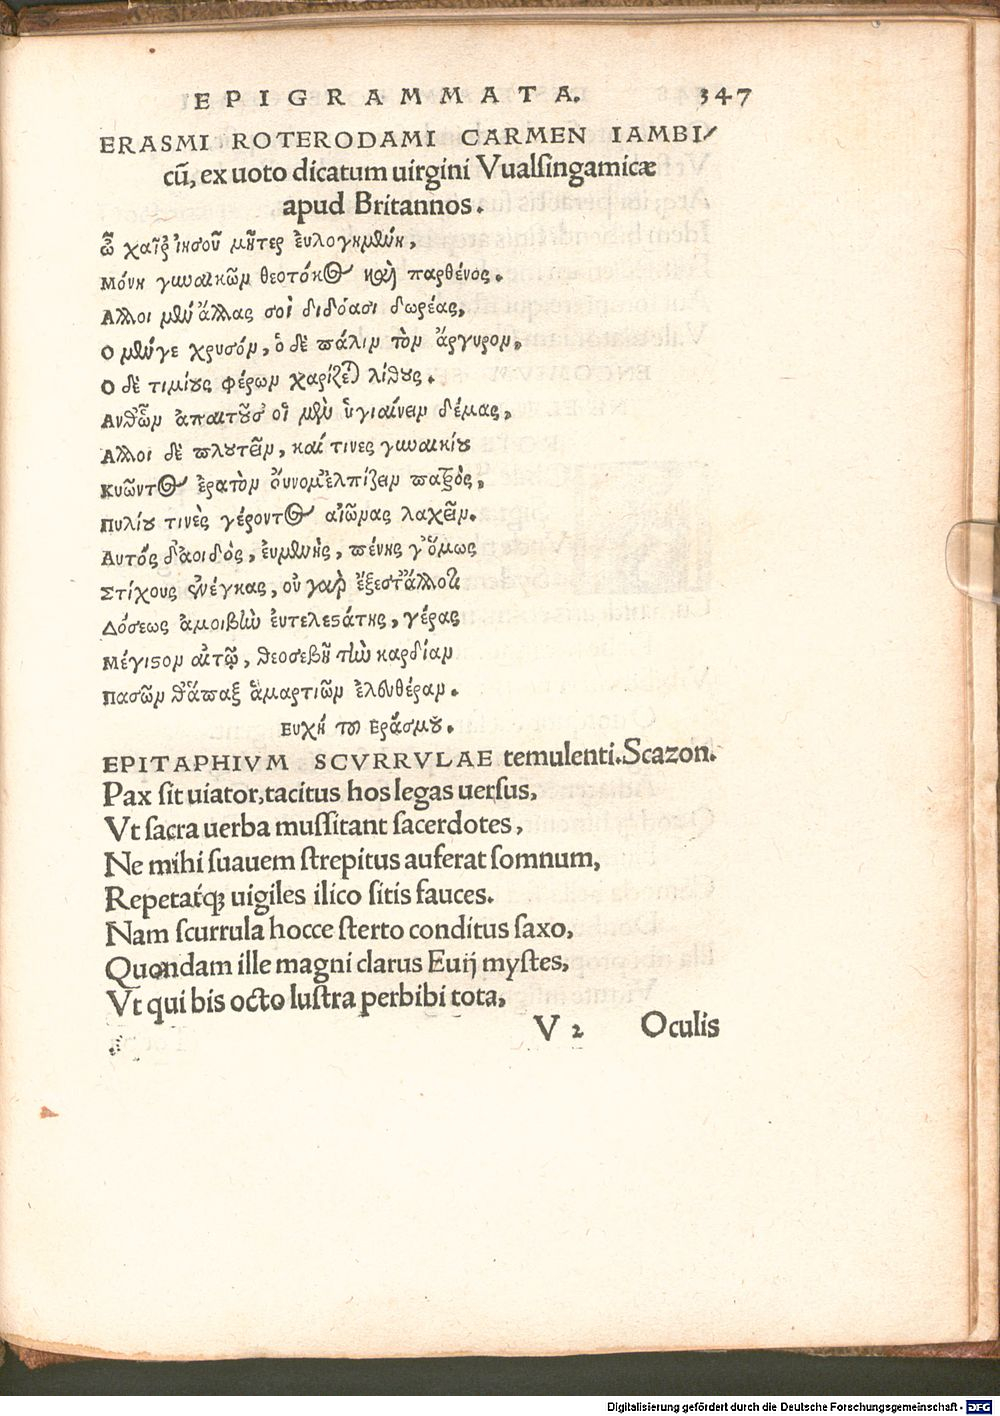 EPIGRAMMATA. 347
ERASMI ROTERODAMI CARMEN IAMBI/
cū, ex uoto dicatum uirgini Vualſingamicæ
apud Britannos.
ὦ χαῖρ᾽ ἰησοῦ μῆτερ ἐυλογημένη,
Μόνη γυναικῶν θεοτόκος καὶ παρθένος.
Αλλοι μὲν ἄλλας σοὶ διδόασι δωρέας,
Ο μέν γε χρυσόν, ὁ δὲ πάλιν τὸν ἄργυρον,
Ο δὲ τιμίους φέρων χαρίζεται λίθους.
Ανθ᾽ ὧν ἀπαιτοῦσ᾽ οἱ μὲν ὑγιαίνειν δέμας,
Αλλοι δὲ πλουτεῖν, καί τινες γυναικίου
Κυῶντος ἐρατὸν οὔνομ᾽ ἐλπίζειν πατρὸς,
Πυλίου τινὲς γέροντος αἰῶνας λαχεῖν.
Αυτός δ᾽ ἀοιδὸς, ἐυμενὴς, πένης γ᾽ ὅμως
Στίχους ἐνέγκας, οὐ γὰρ ἔξεστ᾽ ἄλλο τι
Δόσεως ἀμοιβὴν ἐυτελεστάτης, γέρας
Μέγιστον αἰτῶ, θεοσεβῆ τὴν καρδίαν
Πασῶν θ᾽ ἅπαξ ἁμαρτιῶν ἐλευθέραν.
Ευχή τοῦ Εράσμου.
EPITAPHIVM SCVRRVLAE temulenti. Scazon.
Pax ſit uiator, tacitus hos legas uerſus,
Vt ſacra uerba muſſitant ſacerdotes,
Ne mihi ſuauem ſtrepitus auferat ſomnum,
Repetatq́ꝫ uigiles ilico ſitis fauces.
Nam ſcurrula hocce ſterto conditus ſaxo,
Quondam ille magni clarus Euij myſtes,
Vt qui bis octo luſtra perbibi tota,
V 2 Oculis
Digitalisierung gefördert durch die Deutsche Forschungsgemeinschaft - DFG